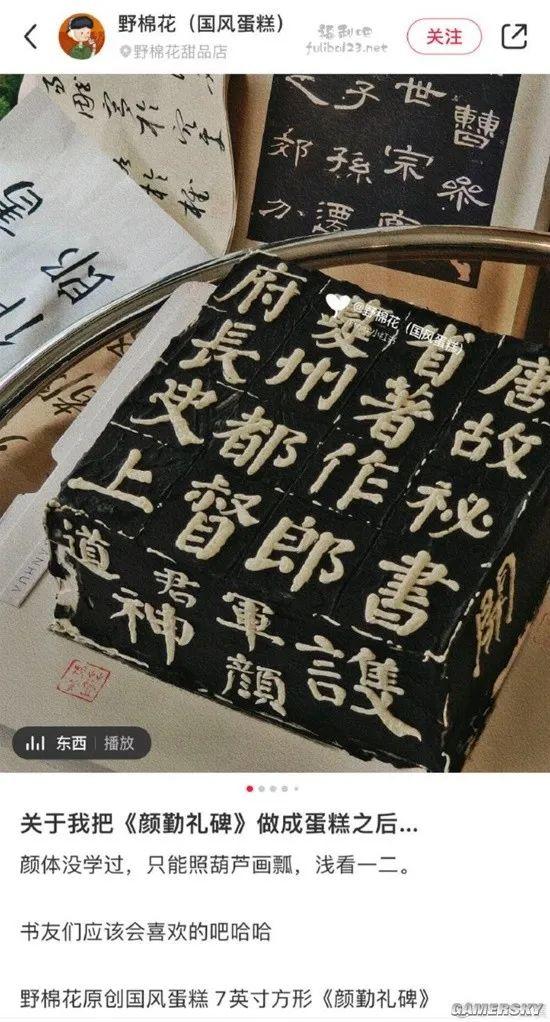 野棉花（国风蛋糕）
野棉花甜品店
福利吧
fulibo123.net
关注
唐故秘書
省著作郎
夔州都督
府長史上
護
軍顏
君神
道
曹
世宗
子孫
@野棉花（国风蛋糕）
小红书
ANHUA
东西 | 播放
关于我把《颜勤礼碑》做成蛋糕之后...
颜体没学过，只能照葫芦画瓢，浅看一二。
书友们应该会喜欢的吧哈哈
野棉花原创国风蛋糕 7英寸方形《颜勤礼碑》
GAMERSKY